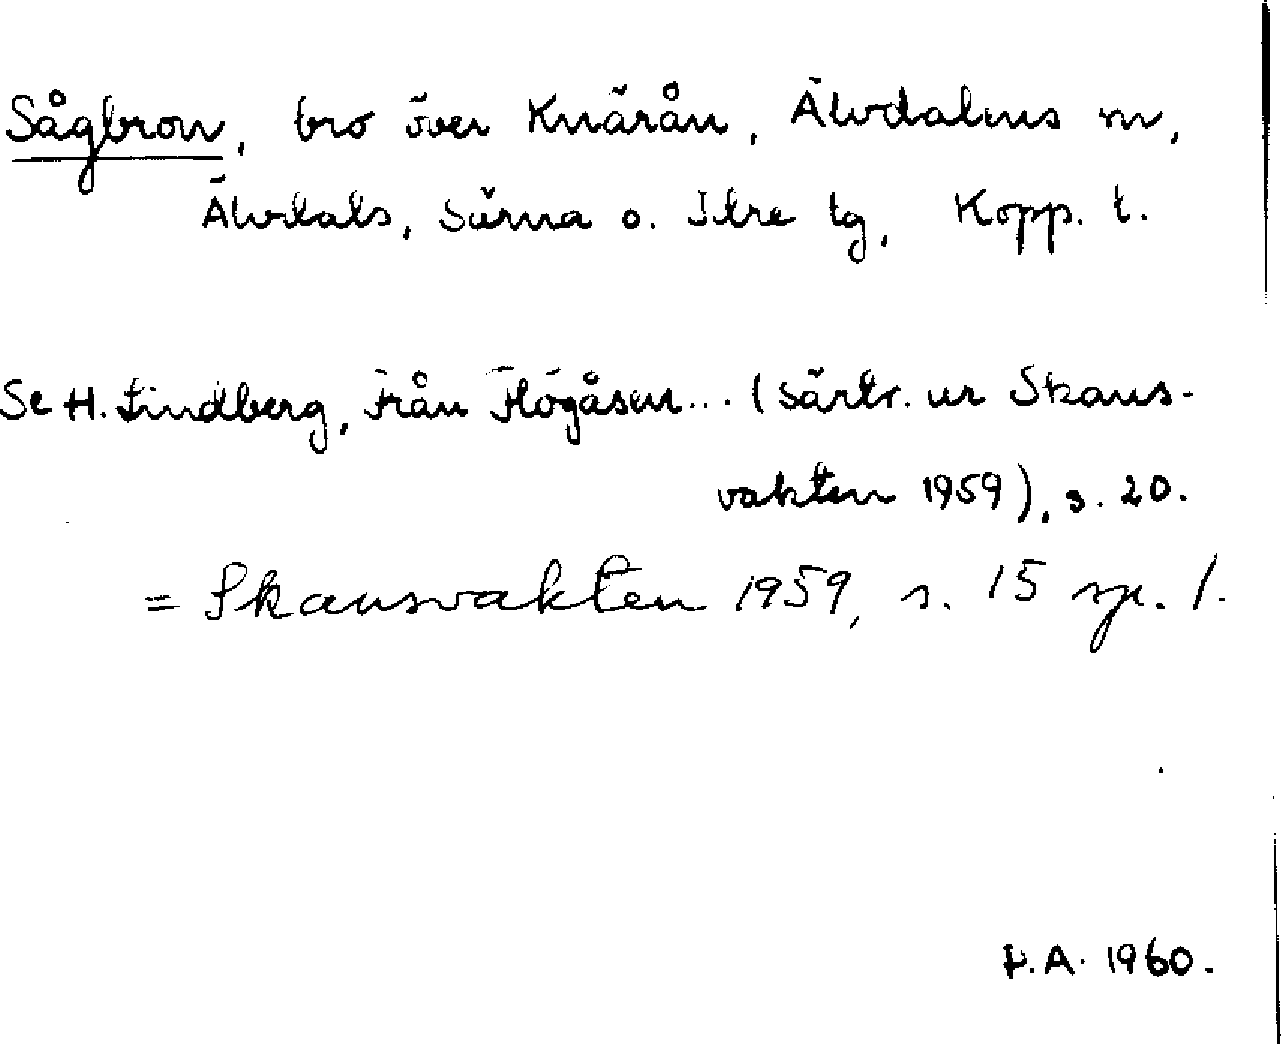 Sågbron, bro över Knärån, Älvdalens sn,
Älvdals, Särna o. Idre tg, Kopp. l.
Se H. Lindberg, Från Högåsen... (särtr. ur Skans-
vakten 1959), s. 20.
= Skansvakten 1959, s. 15 sp. 1.
A. 1960.